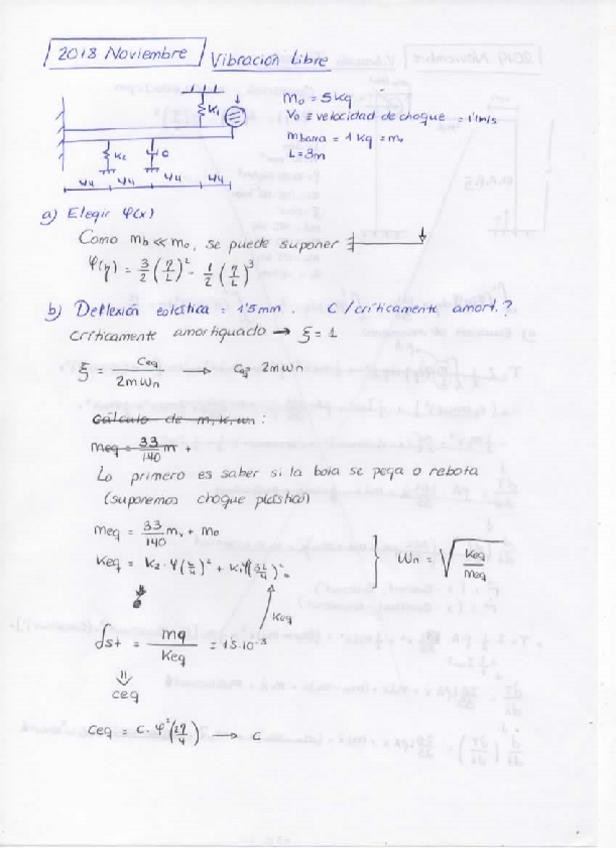 2018 Noviembre Vibración Libre
K1
K2 C
L/4 L/4 L/4 L/4
mo = 5 Kg
Vo ≡ velocidad de choque = 1'1m/s
mbarra = 1 Kg = mv
L = 3m
a) Elegir φ(x)
Como mb << mo, se puede suponer
φ(η) = 3/2 (η/L)² - 1/2 (η/L)³
b) Deflexión estática = 1'5mm. C/críticamente amort.?
Críticamente amortiguado → ξ = 1
ξ = Ceq / 2mωn → Ceq = 2mωn
Cálculo de m, K, ωn :
meq = 33/140 m +
Lo primero es saber si la bola se pega o rebota
(suponemos choque plástico)
meq = 33/140 mv + mo
Keq = K2 · φ(L/4)² + K1 φ(3L/4)²
ωn = √(Keq/Meq)
Keq
δst = mg / Keq = 1'5·10⁻³
⇓
ceq
Ceq = C · φ²(2L/4) → C